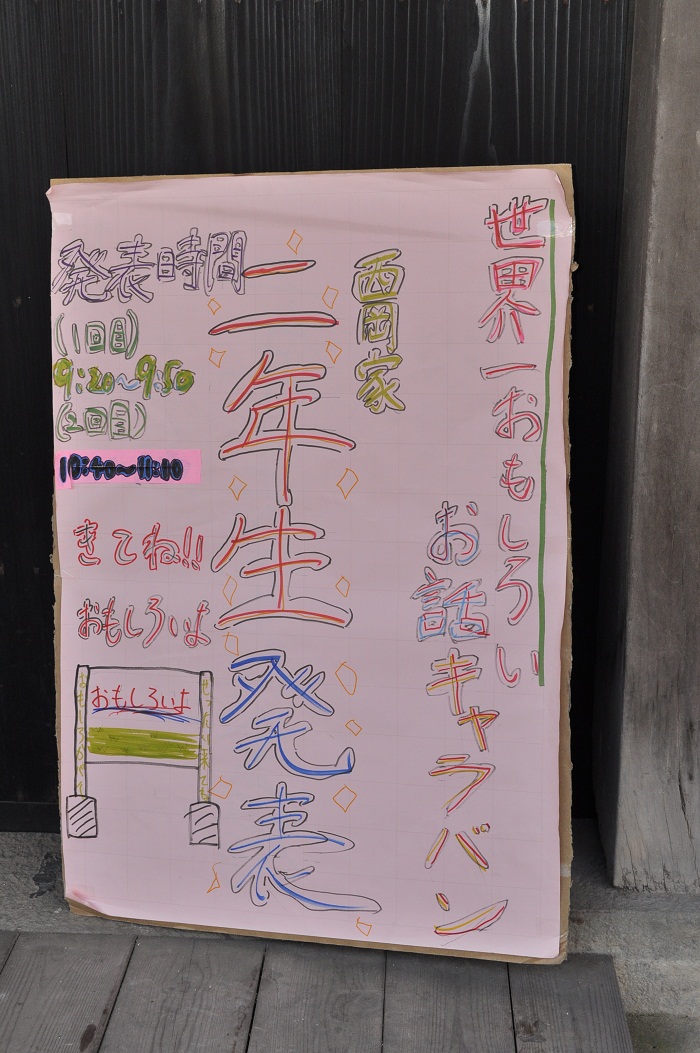 世界一おもしろい
お話キャラバン
西岡家
二年生発表
発表時間
(1回目)
9:20~9:50
(2回目)
10:40~11:10
きてね!!
おもしろいよ
おもしろいよ